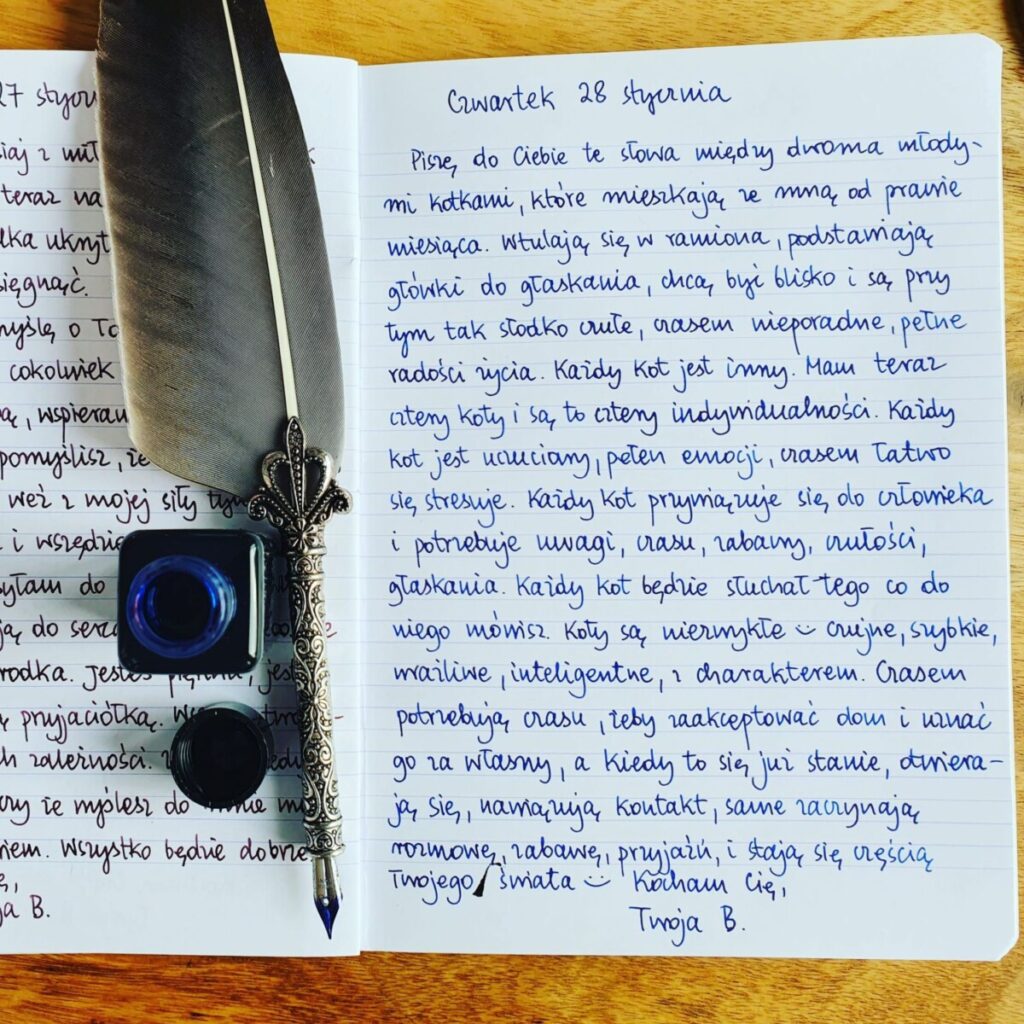 27 stycz
siaj z mił
teraz na
lka ukryt
sięgnąć.
myślę o To
cokolwiek
bą, wspieram
pomyślisz, że
weź z mojej siły tym
i wszędzie
syłam do
ją do serca
rodka. Jesteś piękna, jest
ą przyjaciółką.
ch zależności.
czy że myślesz do mnie
niem. Wszystko będzie dobrze
ę,
ja B.
Czwartek 28 stycznia
Piszę do Ciebie te słowa między dwoma młody-
mi kotkami, które mieszkają ze mną od prawie
miesiąca. Wtulają się w ramiona, podstawiają
główki do głaskania, chcą być blisko i są przy
tym tak słodko czułe, czasem nieporadne, pełne
radości życia. Każdy kot jest inny. Mam teraz
cztery koty i są to cztery indywidualności. Każdy
kot jest uczuciowy, pełen emocji, czasem łatwo
się stresuje. Każdy kot przywiązuje się do człowieka
i potrzebuje uwagi, czasu, zabawy, czułości,
głaskania. Każdy kot będzie słuchał tego co do
niego mówisz. Koty są niezwykłe :) czujne, szybkie,
wrażliwe, inteligentne, z charakterem. Czasem
potrzebują czasu, żeby zaakceptować dom i uznać
go za własny, a kiedy to się już stanie, otwiera-
ją się, nawiązują kontakt, same zaczynają
rozmowę, zabawę, przyjaźń, i stają się częścią
Twojego świata :) Kocham Cię,
Twoja B.